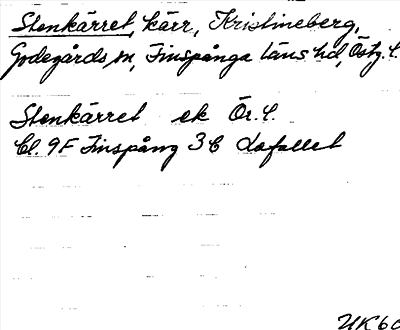 Stenkärret, kärr, Kristineberg,
Godegårds sn, Finspånga läns hd, Östg. l.
Stenkärret ek Ör. l.
Bl. 9F Finspång 3 C Lafallet
UK60